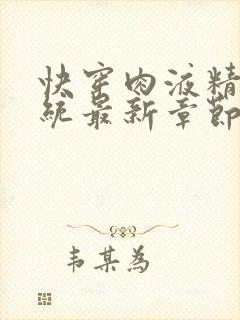 快穿肉液精
统最新章节
韦某为